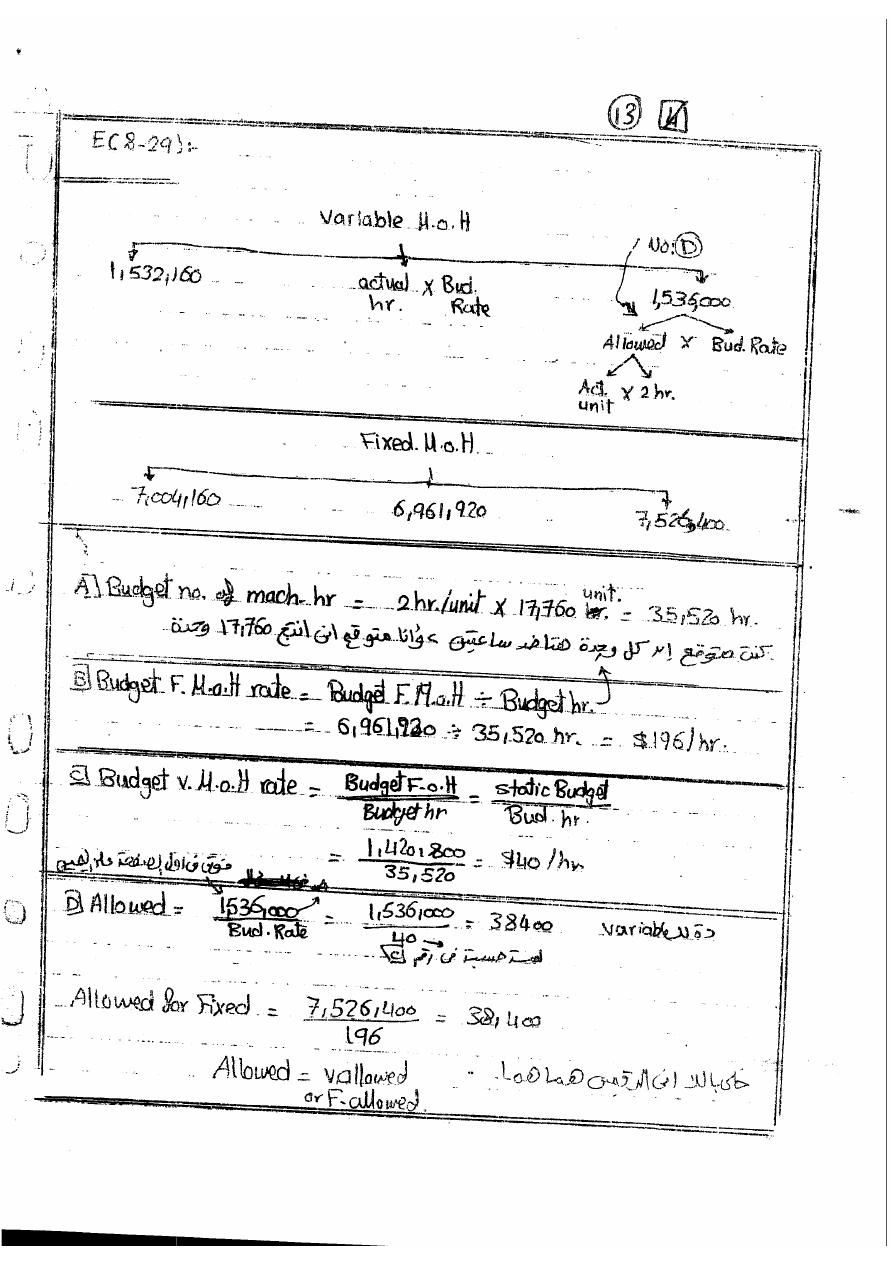 13 14
E(8-29):-
Variable M.o.H
No: D
1,532,160
actual x Bud.
hr. Rate
1,536,000
Allowed x Bud. Rate
Act. x 2 hr.
unit
Fixed. M.o.H.
7,004,160
6,961,920
7,526,400
A] Budget no. of mach. hr = 2hr./unit x 17,760 unit. = 35,520 hr.
كنت متوقع ان كل وحدة هتاخد ساعتين وانا متوقع انى انتج 17,760 وحدة
B] Budget F.M.o.H rate = Budget F.M.o.H ÷ Budget hr.
= 6,961,920 ÷ 35,520 hr. = $196/hr.
C] Budget v.M.o.H rate = Budget F.o.H / Budget hr = static Budget / Bud. hr.
= 1,420,800 / 35,520 = $40/hr
فوق فى اول الصفحة
D] Allowed = 1536,000 / Bud. Rate = 1,536,000 / 40 = 38400 ده لـ variable
لسة حسبة فى رقم C]
Allowed for Fixed = 7,526,400 / 196 = 38,400
Allowed = v allowed
or F-allowed.
خلى بالك ان الرقمين هما هما.